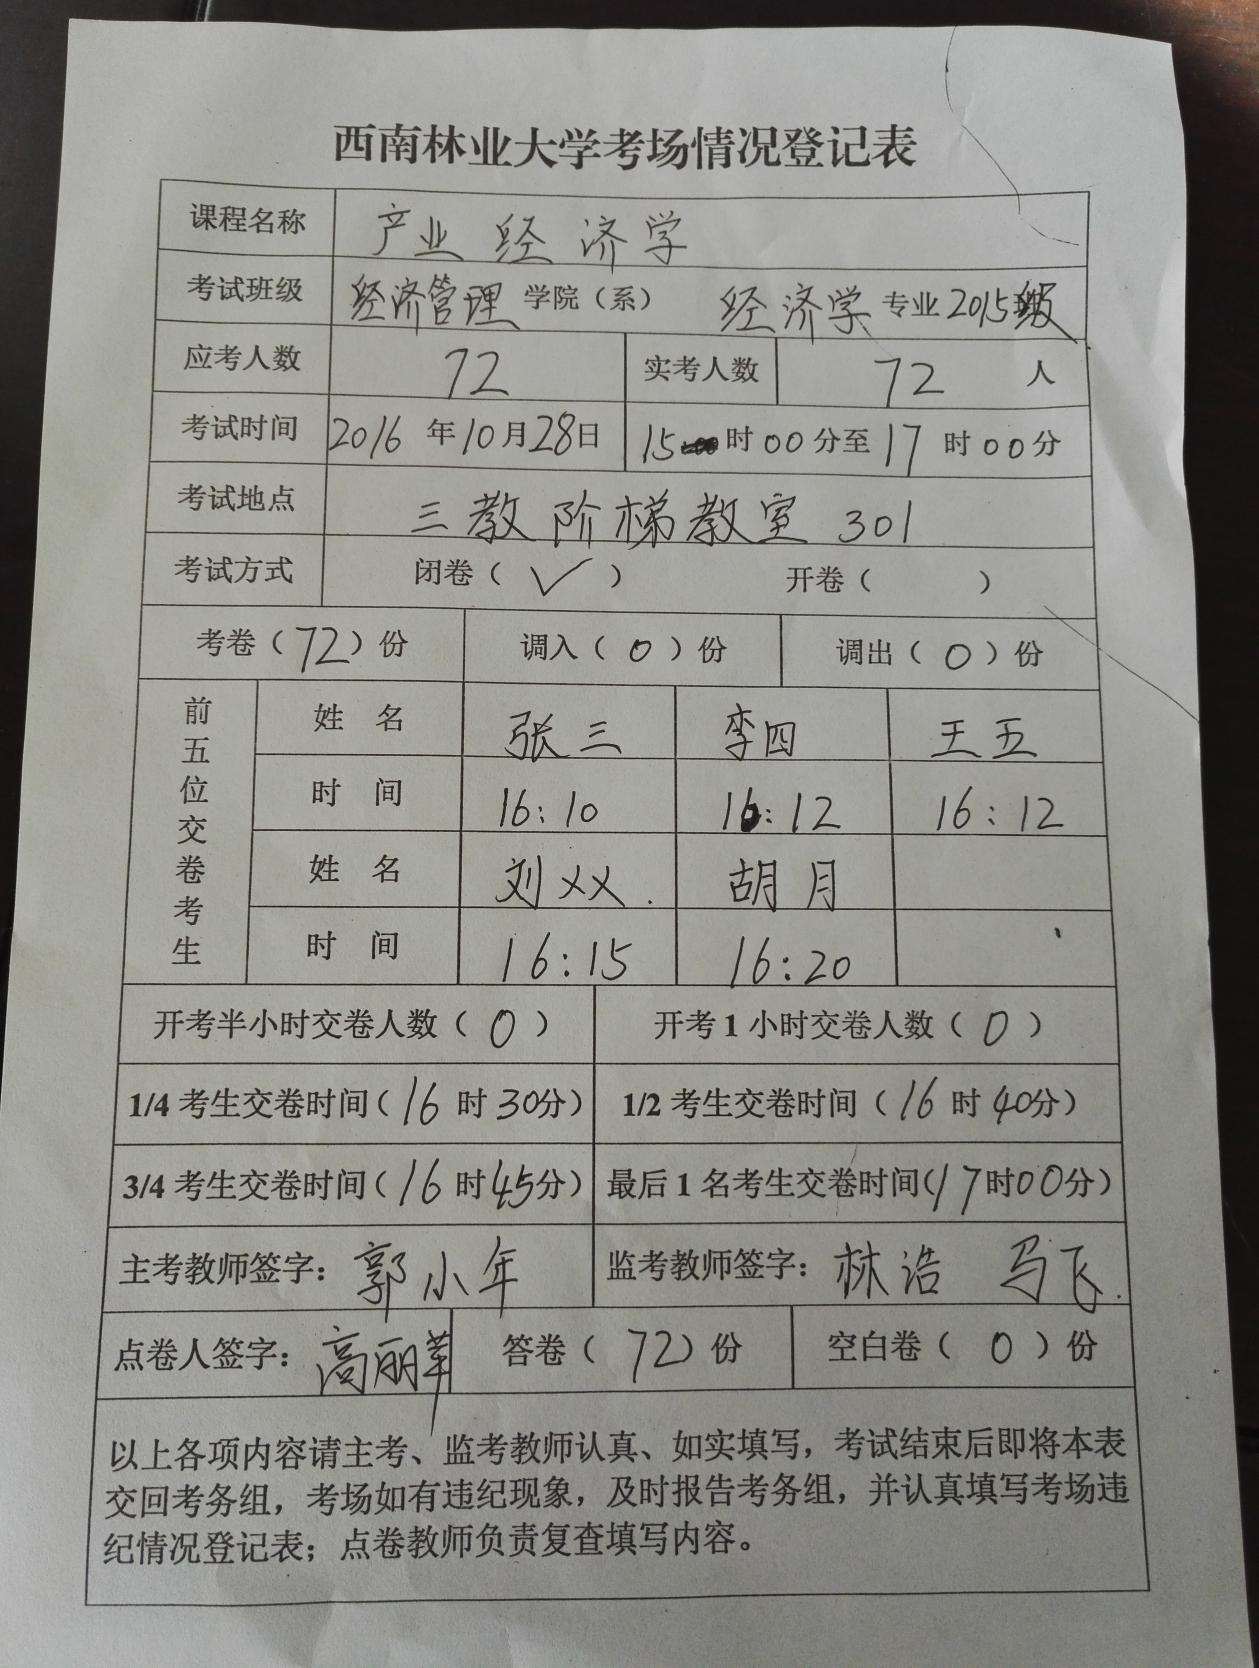 西南林业大学考场情况登记表
课程名称 产业经济学
考试班级 经济管理 学院（系） 经济学 专业 2015级
应考人数 72 实考人数 72 人
考试时间 2016 年 10 月 28 日 15 时 00 分至 17 时 00 分
考试地点 三教阶梯教室 301
考试方式 闭卷（ ✓ ） 开卷（ ）
考卷（ 72 ）份 调入（ 0 ）份 调出（ 0 ）份
前五位交卷考生
姓 名 张三 李四 王五
时 间 16:10 16:12 16:12
姓 名 刘双 胡月
时 间 16:15 16:20
开考半小时交卷人数（ 0 ） 开考 1 小时交卷人数（ 0 ）
1/4 考生交卷时间（ 16 时 30 分） 1/2 考生交卷时间（ 16 时 40 分）
3/4 考生交卷时间（ 16 时 45 分） 最后 1 名考生交卷时间（ 17 时 00 分）
主考教师签字： 郭小年 监考教师签字： 林浩 马飞
点卷人签字： 高丽苹 答卷（ 72 ）份 空白卷（ 0 ）份
以上各项内容请主考、监考教师认真、如实填写，考试结束后即将本表
交回考务组，考场如有违纪现象，及时报告考务组，并认真填写考场违
纪情况登记表；点卷教师负责复查填写内容。